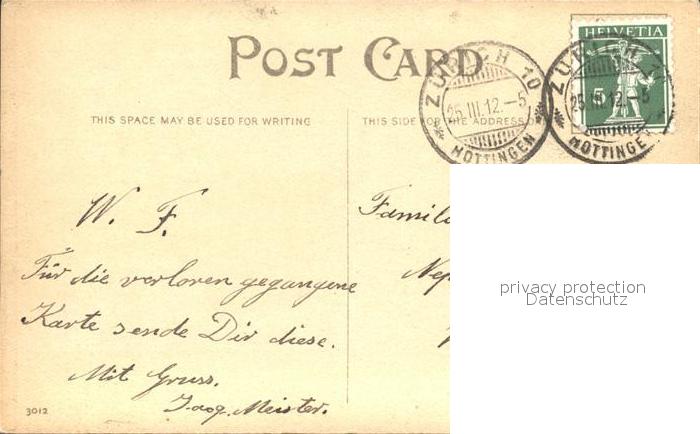 POST CARD
THIS SPACE MAY BE USED FOR WRITING
THIS SIDE FOR THE ADDRESS
ZÜRICH 10
25.III.12.–5
HOTTINGEN
HELVETIA
5
ZÜRICH
25.III.12.–5
HOTTINGEN
W. F.
Für die verloren gegangene
Karte sende Dir diese.
Mit Gruss.
Meister.
Famil
Nep
privacy protection
Datenschutz
3012